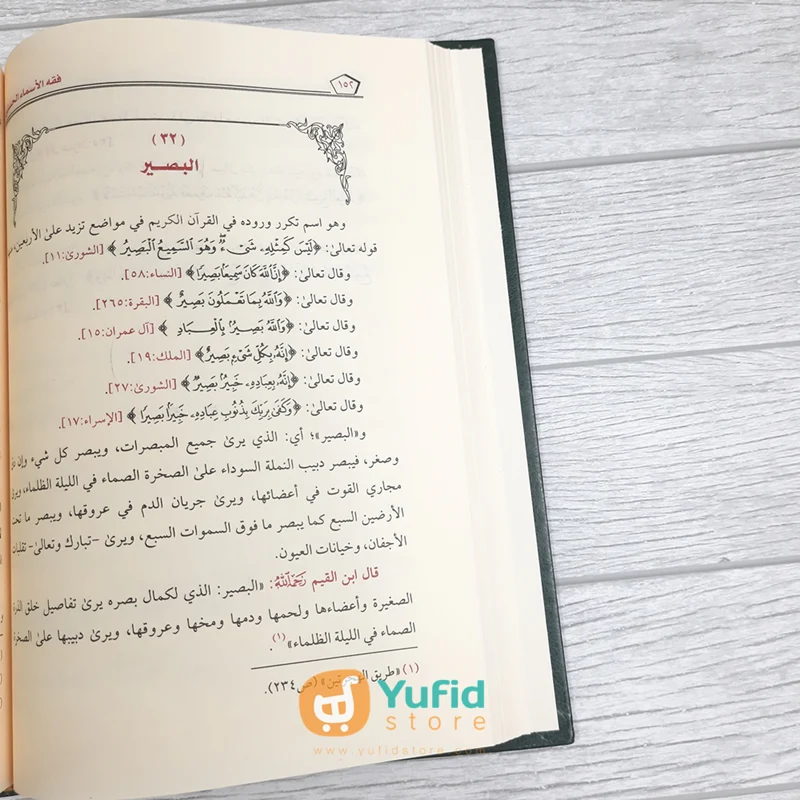 فقه الأسماء
١٥٢
(٣٢)
البصير
وهو اسم تكرر وروده في القرآن الكريم في مواضع تزيد على الأربعين،
قوله تعالىٰ: ﴿لَيْسَ كَمِثْلِهِۦ شَىْءٌ ۖ وَهُوَ السَّمِيعُ الْبَصِيرُ﴾ [الشورىٰ:١١].
وقال تعالىٰ: ﴿إِنَّ اللَّهَ كَانَ سَمِيعًا بَصِيرًا﴾ [النساء:٥٨].
وقال تعالىٰ: ﴿وَاللَّهُ بِمَا تَعْمَلُونَ بَصِيرٌ﴾ [البقرة:٢٦٥].
وقال تعالىٰ: ﴿وَاللَّهُ بَصِيرٌۢ بِالْعِبَادِ﴾ [آل عمران:١٥].
وقال تعالىٰ: ﴿إِنَّهُۥ بِكُلِّ شَىْءٍۭ بَصِيرٌ﴾ [الملك:١٩].
وقال تعالىٰ: ﴿إِنَّهُۥ بِعِبَادِهِۦ خَبِيرٌۢ بَصِيرٌ﴾ [الشورىٰ:٢٧].
وقال تعالىٰ: ﴿وَكَفَىٰ بِرَبِّكَ بِذُنُوبِ عِبَادِهِۦ خَبِيرًۢا بَصِيرًا﴾ [الإسراء:١٧].
و«البصير»؛ أي: الذي يرىٰ جميع المبصرات، ويبصر كل شيء وإن
وصغر، فيبصر دبيب النملة السوداء علىٰ الصخرة الصماء في الليلة الظلماء، ويرىٰ
مجاري القوت في أعضائها، ويرىٰ جريان الدم في عروقها، ويبصر ما تحت
الأرضين السبع كما يبصر ما فوق السموات السبع، ويرىٰ -تبارك وتعالىٰ- تقلبات
الأجفان، وخيانات العيون.
قال ابن القيم رَحِمَهُ اللَّهُ: «البصير: الذي لكمال بصره يرىٰ تفاصيل خلق الذرة
الصغيرة وأعضاءها ولحمها ودمها ومخها وعروقها، ويرىٰ دبيبها علىٰ الصخرة
الصماء في الليلة الظلماء»(١).
(١) «طريق (ص٢٣٤).
Yufid
store
www.yufidstore.com